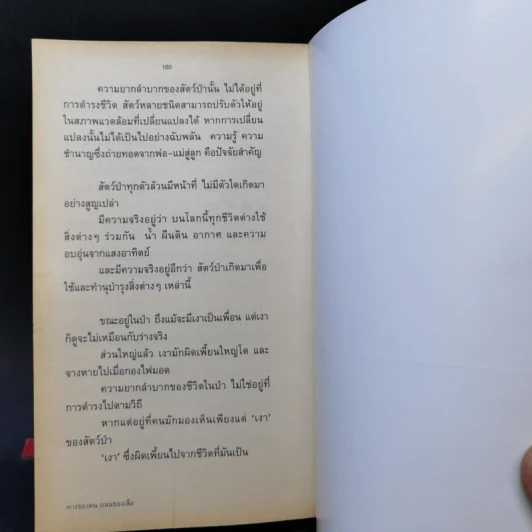 160
ความยากลำบากของสัตว์ป่านั้น ไม่ได้อยู่ที่
การดำรงชีวิต สัตว์หลายชนิดสามารถปรับตัวให้อยู่
ในสภาพแวดล้อมที่เปลี่ยนแปลงได้ หากการเปลี่ยน
แปลงนั้นไม่ได้เป็นไปอย่างฉับพลัน ความรู้ ความ
ชำนาญซึ่งถ่ายทอดจากพ่อ-แม่สู่ลูก คือปัจจัยสำคัญ
สัตว์ป่าทุกตัวล้วนมีหน้าที่ ไม่มีตัวใดเกิดมา
อย่างสูญเปล่า
มีความจริงอยู่ว่า บนโลกนี้ทุกชีวิตต่างใช้
สิ่งต่างๆ ร่วมกัน น้ำ ผืนดิน อากาศ และความ
อบอุ่นจากแสงอาทิตย์
และมีความจริงอยู่อีกว่า สัตว์ป่าเกิดมาเพื่อ
ใช้และทำนุบำรุงสิ่งต่างๆ เหล่านี้
ขณะอยู่ในป่า ถึงแม้จะมีเงาเป็นเพื่อน แต่เงา
ก็ดูจะไม่เหมือนกับร่างจริง
ส่วนใหญ่แล้ว เงามักผิดเพี้ยนใหญ่โต และ
จางหายไปเมื่อกองไฟมอด
ความยากลำบากของชีวิตในป่า ไม่ใช่อยู่ที่
การดำรงไปตามวิถี
หากแต่อยู่ที่คนมักมองเห็นเพียงแค่ 'เงา'
ของสัตว์ป่า
'เงา' ซึ่งผิดเพี้ยนไปจากชีวิตที่มันเป็น
ทางของคน ถนนของเสือ